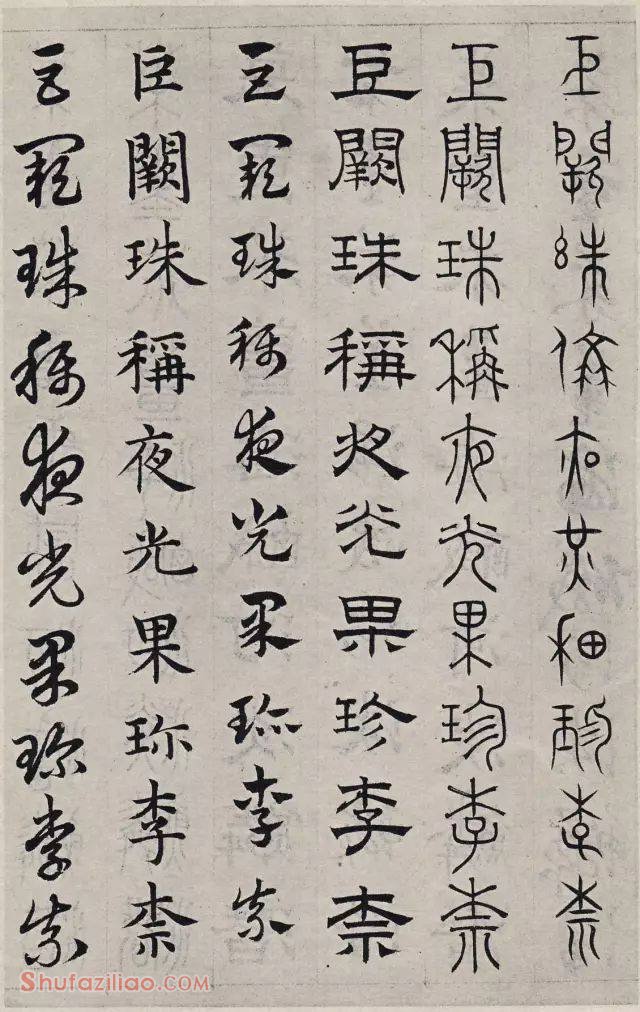 巨闕珠稱夜光果珍李柰
巨闕珠稱夜光果珍李柰
巨闕珠稱夜光果珍李柰
巨闕珠稱夜光果珎李柰
巨闕珠稱夜光果珎李柰
巨闕珠稱夜光果珎李柰
Shufaziliao.com